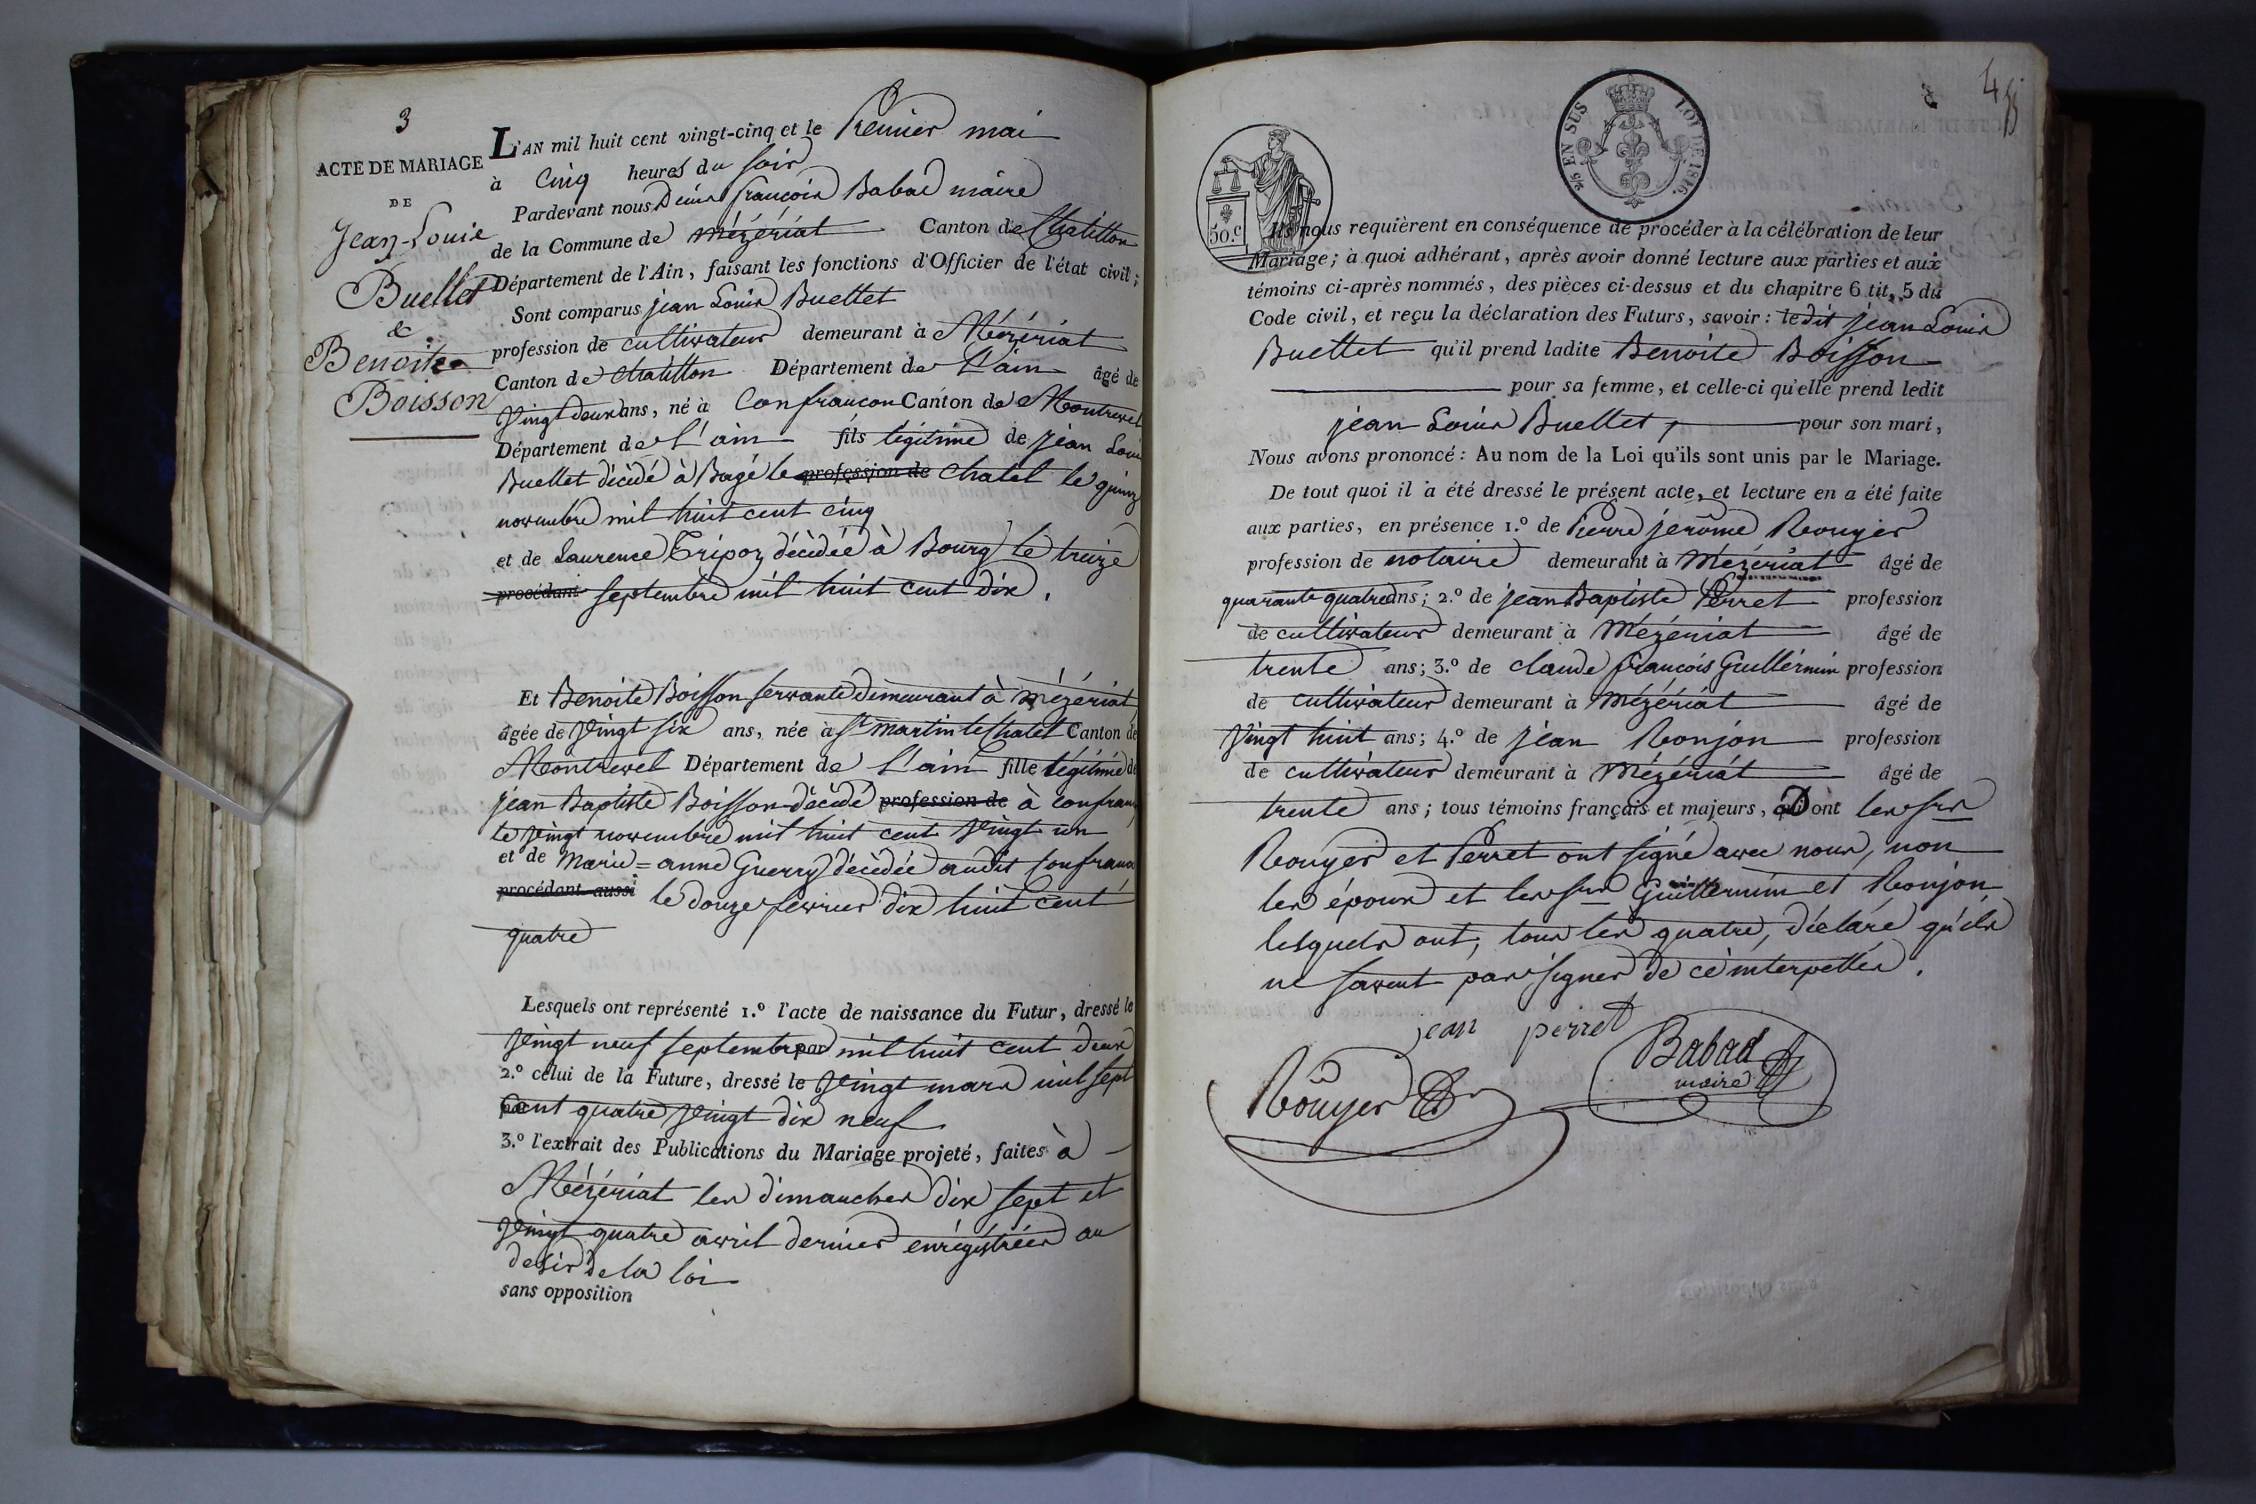 3
ACTE DE MARIAGE
DE
Jean-Louis
Buellet
&
Benoite
Boisson
L'AN mil huit cent vingt-cinq et le Premier mai
à Cinq heures du soir
Pardevant nous Denis françois Babad maire
de la Commune de Mézériat Canton de Chatillon
Département de l'Ain, faisant les fonctions d'Officier de l'état civil;
Sont comparus jean Louis Buellet
profession de cultivateur demeurant à Mézériat
Canton de Chatillon Département de L'ain âgé de
Vingt deux ans, né à Confrancon Canton de Montrevel
Département de L'ain fils légitime de jean Loui
Buellet décédé à Bagé le profession de Chatel le quinz
novembre mil huit cent cinq
et de Laurence Tripoz décédée à Bourg le treize
procédant septembre mil huit cent dix.
Et Benoite Boisson servante demeurant à Mézériat
âgée de Vingt six ans, née à St martin le Chatel Canton de
Montrevel Département de L'ain fille légitime de
jean Baptiste Boisson décédé profession de à confranc
le Vingt novembre mil huit cent Vingt un
et de Marie=anne Guerry décédée audit Confranc
procédant aussi le douze fevrier dix huit cent
quatre
Lesquels ont représenté 1.º l'acte de naissance du Futur, dressé le
Vingt neuf septembre par mil huit cent deux
2.º celui de la Future, dressé le Vingt mars mil sept
par Cent quatre Vingt dix neuf
3.º l'extrait des Publications du Mariage projeté, faites à
Mézériat les dimanches dix sept et
Vingt quatre avril dernier enrégistrées au
desir de la loi
sans opposition
45
5/10 EN SUS LOI DE 1816.
50.c
Ils nous requièrent en conséquence de procéder à la célébration de leur
Mariage; à quoi adhérant, après avoir donné lecture aux parties et aux
témoins ci-après nommés, des pièces ci-dessus et du chapitre 6 tit. 5 du
Code civil, et reçu la déclaration des Futurs, savoir: ledit jean Louis
Buellet qu'il prend ladite Benoite Boisson
pour sa femme, et celle-ci qu'elle prend ledit
jean Louis Buellet, pour son mari,
Nous avons prononcé: Au nom de la Loi qu'ils sont unis par le Mariage.
De tout quoi il a été dressé le présent acte, et lecture en a été faite
aux parties, en présence 1.º de Pierre jerôme Rouyer
profession de notaire demeurant à Mézériat âgé de
quarante quatre ans; 2.º de jean Baptiste Perret profession
de cultivateur demeurant à Mézériat âgé de
trente ans; 3.º de claude françois Guillermin profession
de cultivateur demeurant à Mézériat âgé de
Vingt huit ans; 4.º de jean Ronjon profession
de cultivateur demeurant à Mézériat âgé de
trente ans; tous témoins français et majeurs, Dont les srs
Rouyer et Perret ont signé avec nous, non
les époux et les srs Guillermin et Ronjon
lesquels ont, tous les quatre, déclaré qu'ils
ne savent pas signer de ce interpellés.
jean perret
Babad
maire
Rouyer